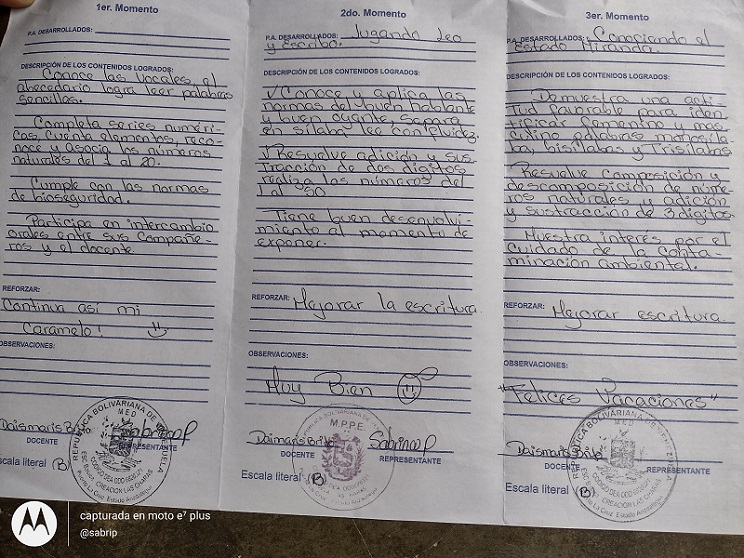 1er. Momento
P.A. DESARROLLADOS:
DESCRIPCIÓN DE LOS CONTENIDOS LOGRADOS:
Conoce las vocales, el
abecedario logra leer palabras
sencillas.
Completa series numéri-
cas, cuenta elementos, reco-
noce y asocia los números
naturales del 1 al 20.
Cumple con las normas
de bioseguridad.
Participa en intercambio
orales entre sus compañe-
ros y el docente.
REFORZAR:
Continua así mi
Caramelo!
OBSERVACIONES:
DOCENTE
REPRESENTANTE
Escala literal (B)
2do. Momento
P.A. DESARROLLADOS: Jugando leo
y escribo.
DESCRIPCIÓN DE LOS CONTENIDOS LOGRADOS:
Conoce y aplica las
normas del buen hablante
y buen oyente, separa
en sílaba lee con fluidez.
Resuelve adición y sus
tracción de dos dígitos
realiza los números del
1 al 50
Tiene buen desenvolvi-
miento al momento de
exponer.
REFORZAR: Mejorar la escritura.
OBSERVACIONES:
Muy Bien
M.P.P.E.
DOCENTE
REPRESENTANTE
Escala literal (B)
3er. Momento
P.A. DESARROLLADOS: Conociendo el
estado Miranda.
DESCRIPCIÓN DE LOS CONTENIDOS LOGRADOS:
Demuestra una acti-
tud favorable para iden-
tificar femenino y mas
culino palabras monosíla
ba, bisílabas y Trisílabas
Resuelve composición y
descomposición de núme-
ros naturales y adición
y sustracción de 3 dígitos.
Muestra interés por el
cuidado de la conta-
minación ambiental.
REFORZAR: Mejorar escritura.
OBSERVACIONES:
"Felices Vacaciones"
DOCENTE
REPRESENTANTE
Escala literal (B)
REPÚBLICA BOLIVARIANA DE VENEZUELA
MED
capturada en moto e⁷ plus
@sabrip